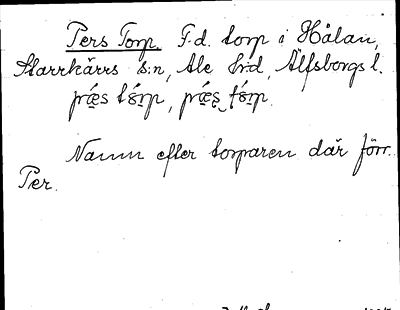 Pers Torp. F.d. torp i Hålan,
Starrkärrs s:n, Ale hrd, Älfsborgs l.
Namn efter torparen där förr.
Per.